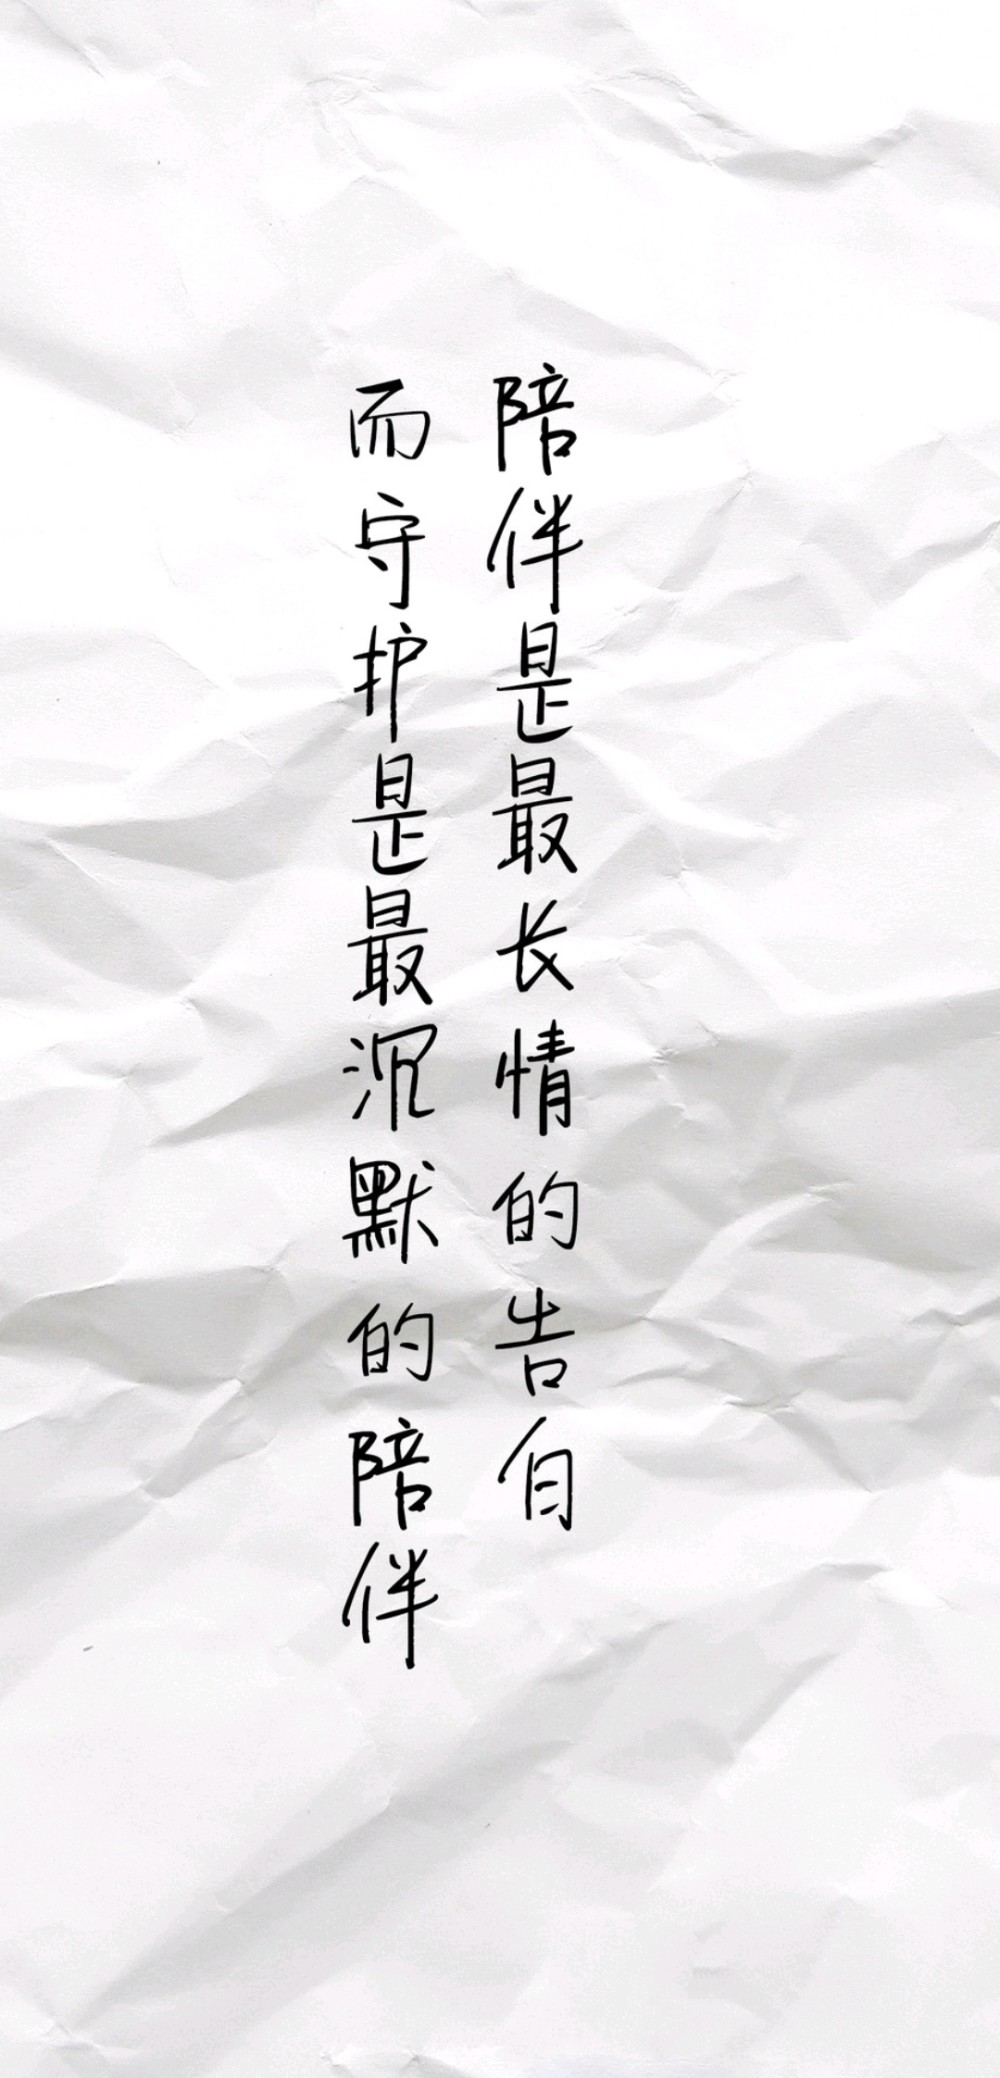 陪伴是最长情的告白
而守护是最沉默的陪伴